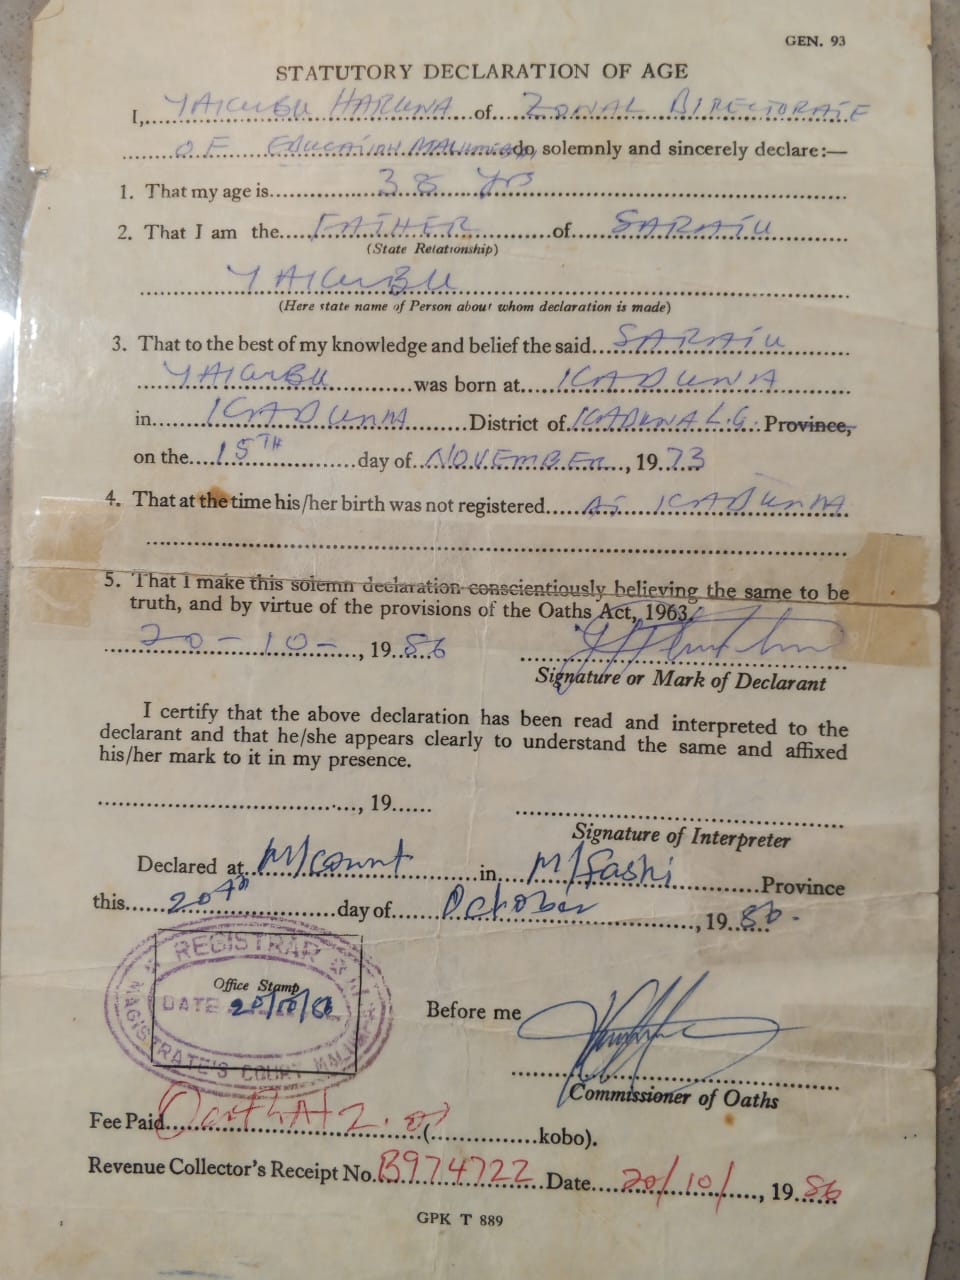 GEN. 93
STATUTORY DECLARATION OF AGE
I, YAKUBU HARUNA of ZONAL DIRECTORATE
OF EDUCATION do, solemnly and sincerely declare:—
1. That my age is 38 yrs
2. That I am the FATHER of SARATU
(State Relationship)
YAKUBU
(Here state name of Person about whom declaration is made)
3. That to the best of my knowledge and belief the said SARATU
YAKUBU was born at KADUNA
in KADUNA District of KADUNA L.G. Province,
on the 15TH day of NOVEMBER, 1973
4. That at the time his/her birth was not registered At KADUNA
5. That I make this solemn declaration conscientiously believing the same to be
truth, and by virtue of the provisions of the Oaths Act, 1963.
20-10-, 1986
Signature or Mark of Declarant
I certify that the above declaration has been read and interpreted to the
declarant and that he/she appears clearly to understand the same and affixed
his/her mark to it in my presence.
, 19
Signature of Interpreter
Declared at M/Court in M/Fashi Province
this 20th day of October, 1986.
REGISTRAR
Office Stamp
DATE 20/10/86
MAGISTRATE'S COURT
Before me
Commissioner of Oaths
Fee Paid ( kobo).
Revenue Collector's Receipt No. B974722 Date 20/10/, 1986
GPK T 889